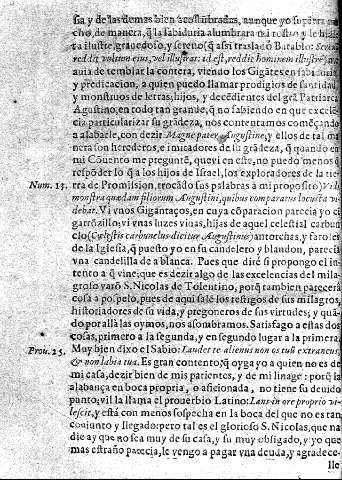 sia y de las demas bien acostumbradas, aunque yo supiera mu
cho, de manera, q̃ la sabiduria alumbrara mi rostro y le hiziera
ra ilustre, graue doso, y sereno (q̃ assi traslado Batablo: Serenũ
reddit vultum eius, vel illustrat: id est, reddit hominem illustrẽ)
auia de temblar la contera, viendo los Gigãtes en sabiduria
y predicacion, a quien puedo llamar prodigios de santidad
y monstruos de letras, hijos, y decẽdientes del grã Patriarca
Agustino, en todo tan grande, q̃ no sabiendo en que excelẽ-
cia particularizar su grãdeza, nos contentamos começãndo
a alabarle, con dezir: Magne pater Augustine, y ellos de tal ma
nera son herederos, e imitadores de la grãdeza, q̃ quando en
mi Cõuento me preguntẽ, que vi en este, no puedo menos q̃
respõder lo q̃ a los hijos de Israel, los exploradores de la tie-
Num. 13. rra de Promission, trocãdo sus palabras a mi proposito) Vidi
monstra quædam filiorum Augustini, quibus comparatus locusta vi-
debar. Vi vnos Gigantaços, en cuya cõparacion parecia yo ci
garrõzillo: vi vnas luzes viuas, hijas de aquel celestial carbun
clo (Cœlestis carbunculus dicitur Augustinus) antorchas, y faroles
de la Iglesia, q̃ puesto yo en su candelero y blandon, parecia
vna candelilla de a blanca. Pues que dirè si propongo el in-
tento a q̃ vine; que es dezir algo de las excelencias del mila-
groso varõ S. Nicolas de Tolentino, porq̃ tambien parecerà
cosa a proposito, pues de aqui salẽ los testigos de sus milagros,
historiadores de su vida, y pregoneros de sus virtudes; y quã-
do por allà los oymos, nos assombramos. Satisfago a estas dos
cosas, primero a la segunda, y en segundo lugar a la primera.
Prou. 25. Muy bien dixo el Sabio: Laudet te alienus non os tuũ extraneus,
& non labia tua. Es gran contento, q̃ oyga yo a quien no es de
mi casa, dezir bien de mis parientes, y de mi linage: porq̃ la
alabança en boca propria, o aficionada, no tiene su deuido
punto: vil la llama el prouerbio Latino: Laus in ore proprio vi-
lescit, y està con menos sospecha en la boca del que no es tan
conjunto y llegado: pero tal es el glorioso S. Nicolas, que na
die ay que no sea muy de su casa, y su muy obligado, y yo que
mas estraño parecia, le vengo a pagar vna deuda, y agradece-
lle